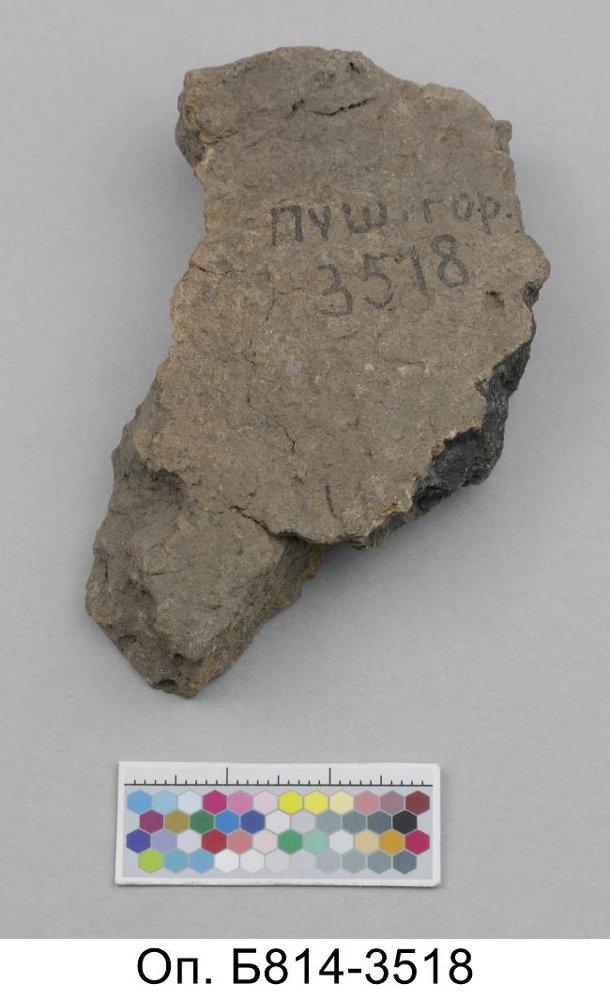 пуш. гор.
3518
Оп. Б814-3518